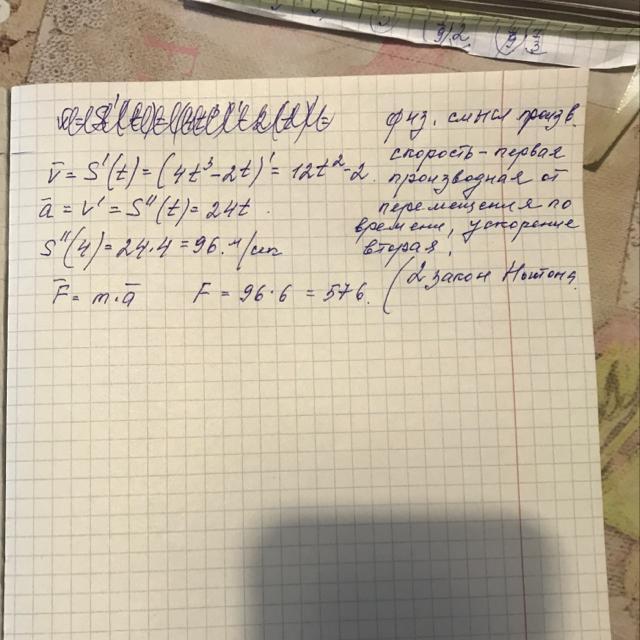 (7/9)2 (7/9) 2/3
физ. смысл произв.
скорость - первая
производная от
перемещения по
времени, ускорение
вторая.
v̄ = S'(t) = (4t³-2t)' = 12t²-2.
ā = v' = S''(t) = 24t.
S''(4) = 24·4 = 96. м/сек
F̄ = m·ā F = 96·6 = 576. (2 закон Ньютона